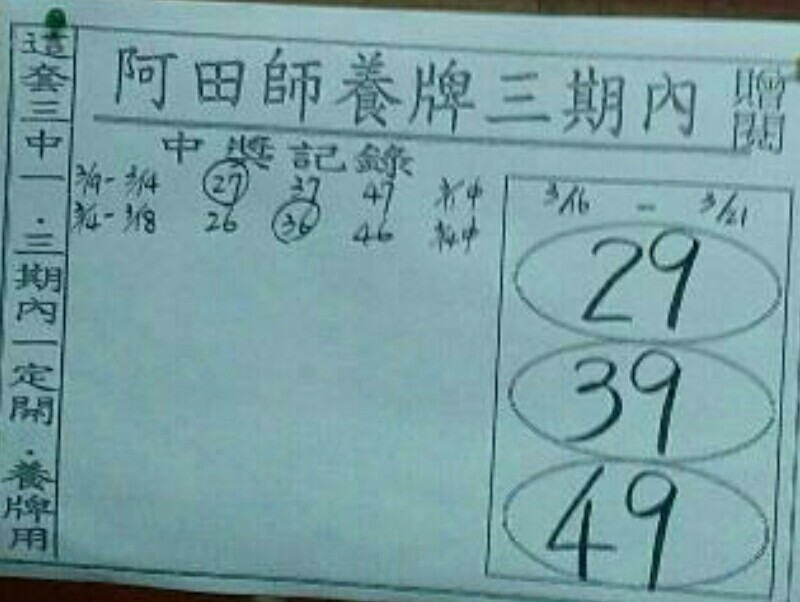 這套三中一.三期內一定開.養牌用
阿田師養牌三期內
贈閱
中獎記錄
3/9 - 3/14 27 37 47
3/14 - 3/18 26 36 46 3/14中
3/16 - 3/21
29
39
49